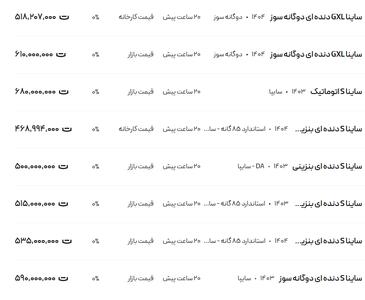 ساینا GXL دنده ای دوگانه سوز ۱۴۰۴ • دوگانه سوز ۲۰ ساعت پیش قیمت کارخانه ۰% ۵۱۸,۲۰۷,۰۰۰ ت
ساینا GXL دنده ای دوگانه سوز ۱۴۰۴ • دوگانه سوز ۲۰ ساعت پیش قیمت بازار ۰% ۶۱۰,۰۰۰,۰۰۰ ت
ساینا S اتوماتیک ۱۴۰۳ • سایپا ۲۰ ساعت پیش قیمت بازار ۰% ۶۸۰,۰۰۰,۰۰۰ ت
ساینا S دنده ای بنزینی... ۱۴۰۴ • استاندارد 85 گانه - سا... ۲۰ ساعت پیش قیمت کارخانه ۰% ۴۶۸,۹۹۴,۰۰۰ ت
ساینا S دنده ای بنزینی ۱۴۰۳ • DA - سایپا ۲۰ ساعت پیش قیمت بازار ۰% ۵۰۰,۰۰۰,۰۰۰ ت
ساینا S دنده ای بنزی... ۱۴۰۳ • استاندارد 85 گانه - سا... ۲۰ ساعت پیش قیمت بازار ۰% ۵۱۵,۰۰۰,۰۰۰ ت
ساینا S دنده ای بنزی... ۱۴۰۴ • استاندارد 85 گانه - سا... ۲۰ ساعت پیش قیمت بازار ۰% ۵۳۵,۰۰۰,۰۰۰ ت
ساینا S دنده ای دوگانه سوز ۱۴۰۳ • سایپا ۲۰ ساعت پیش قیمت بازار ۰% ۵۹۰,۰۰۰,۰۰۰ ت